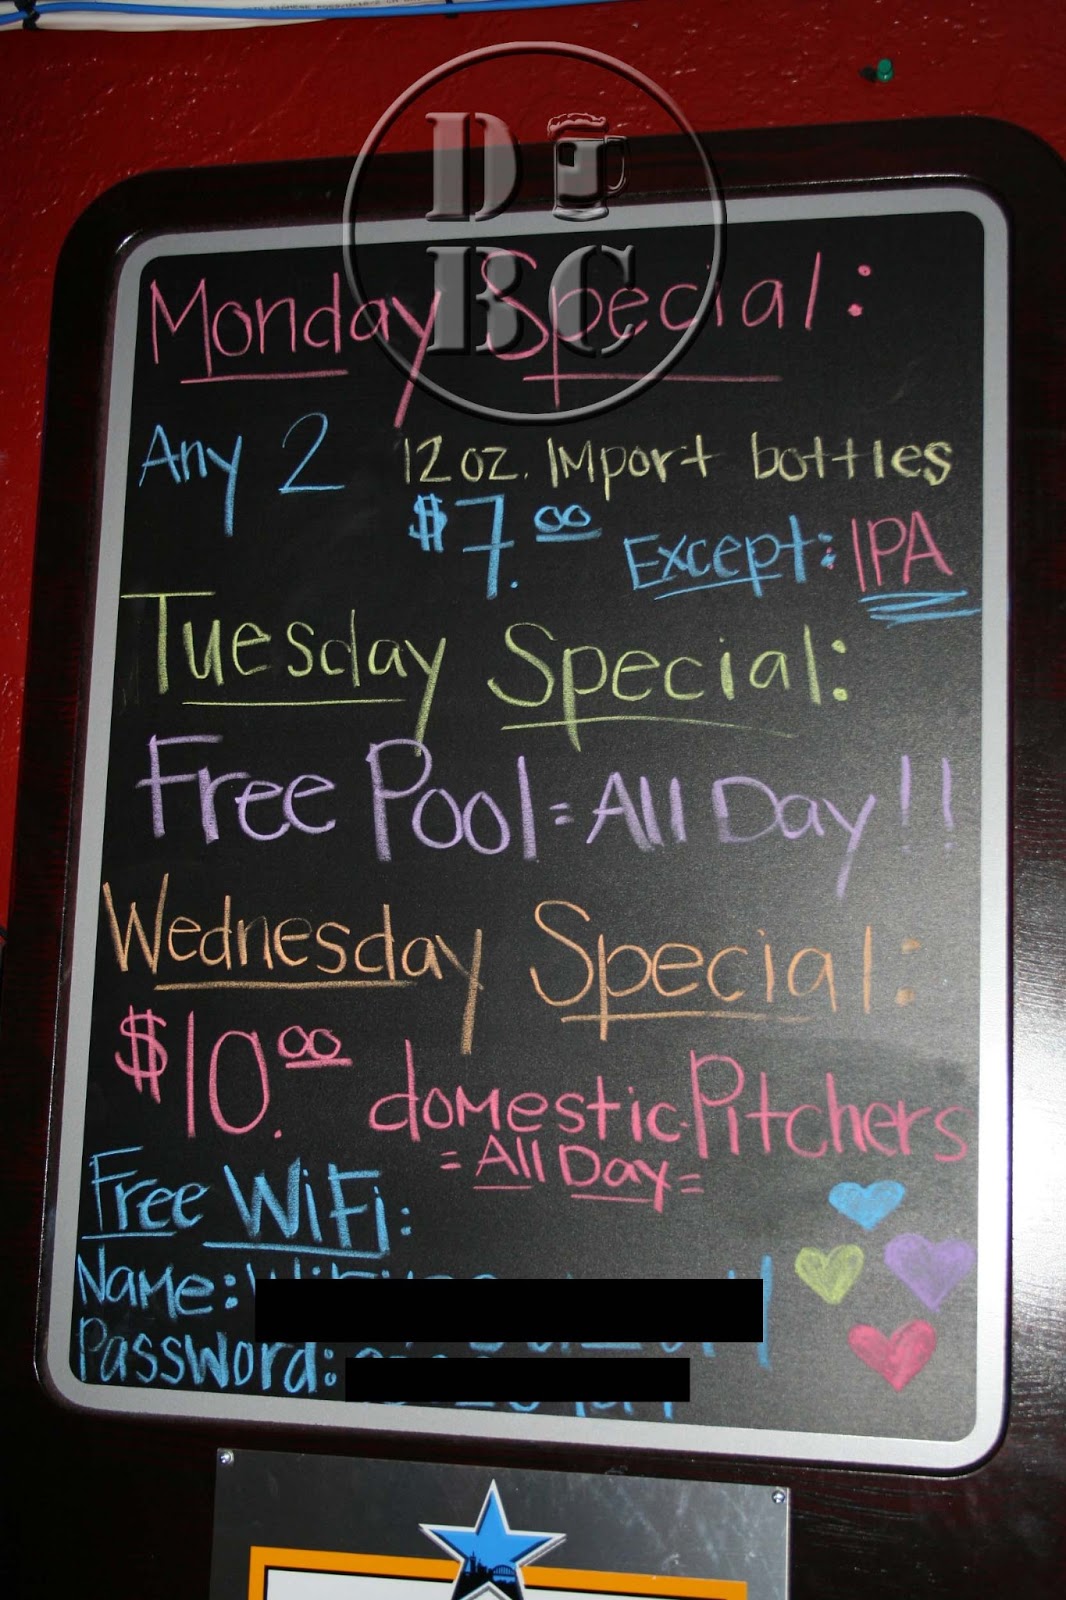 D
BC
Monday Special:
Any 2 12oz. Import bottles
$7.00 Except: IPA
Tuesday Special:
Free Pool = All Day!!
Wednesday Special:
$10.00 domestic Pitchers
= All Day =
Free WiFi:
Name:
Password: